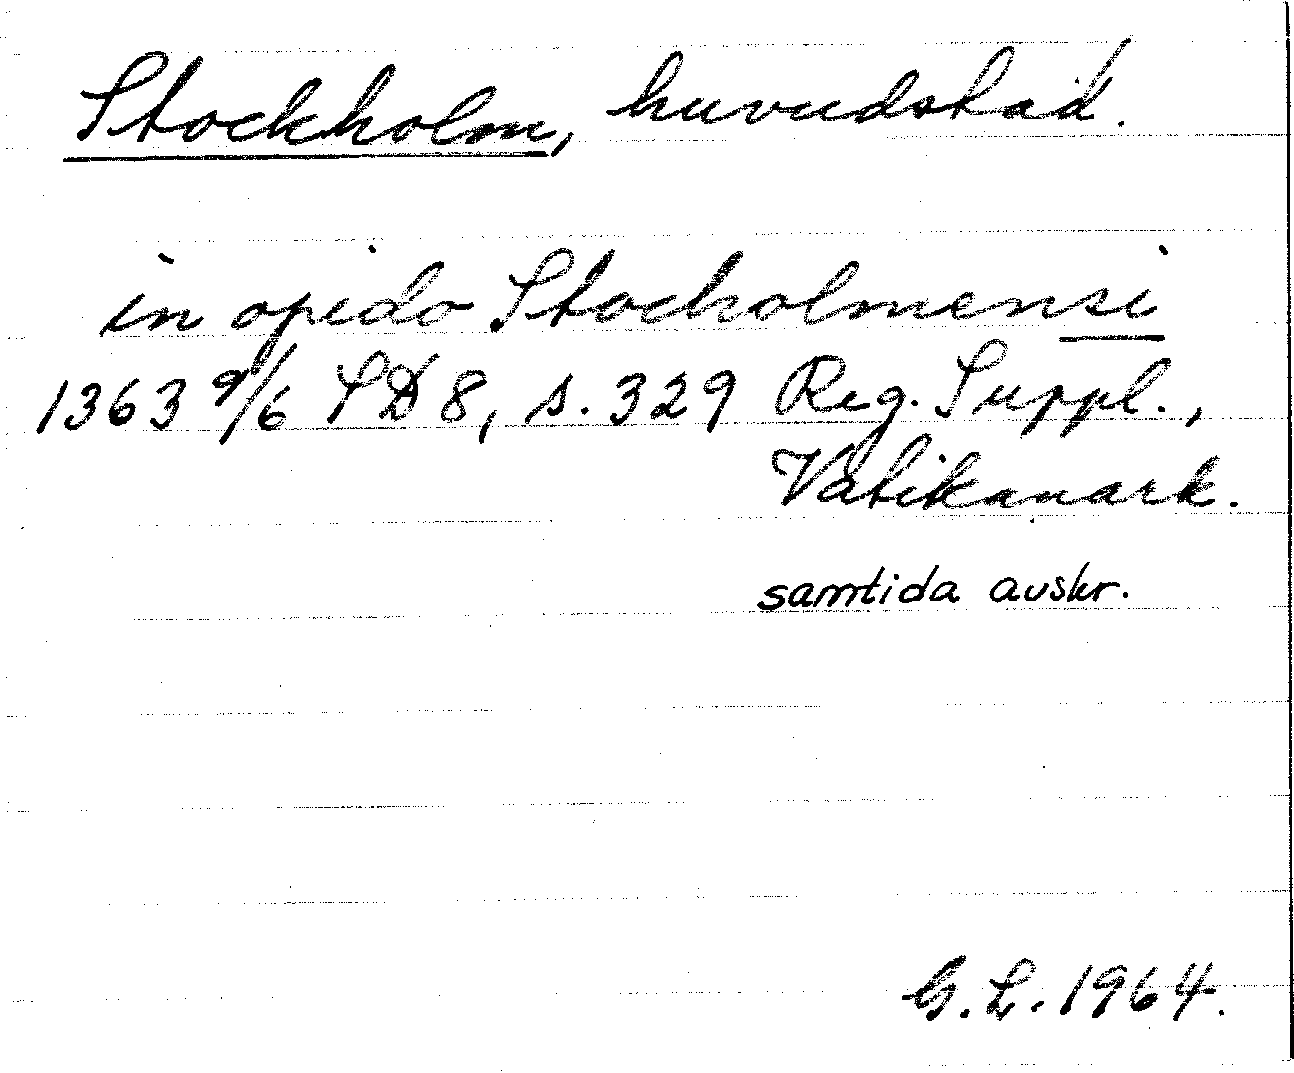 Stockholm, huvudstad.
in opido Stocholmensi
1363 9/6 SD 8, s. 329 Reg. Suppl.,
Vatikanark.
samtida avskr.
G. L. 1964.